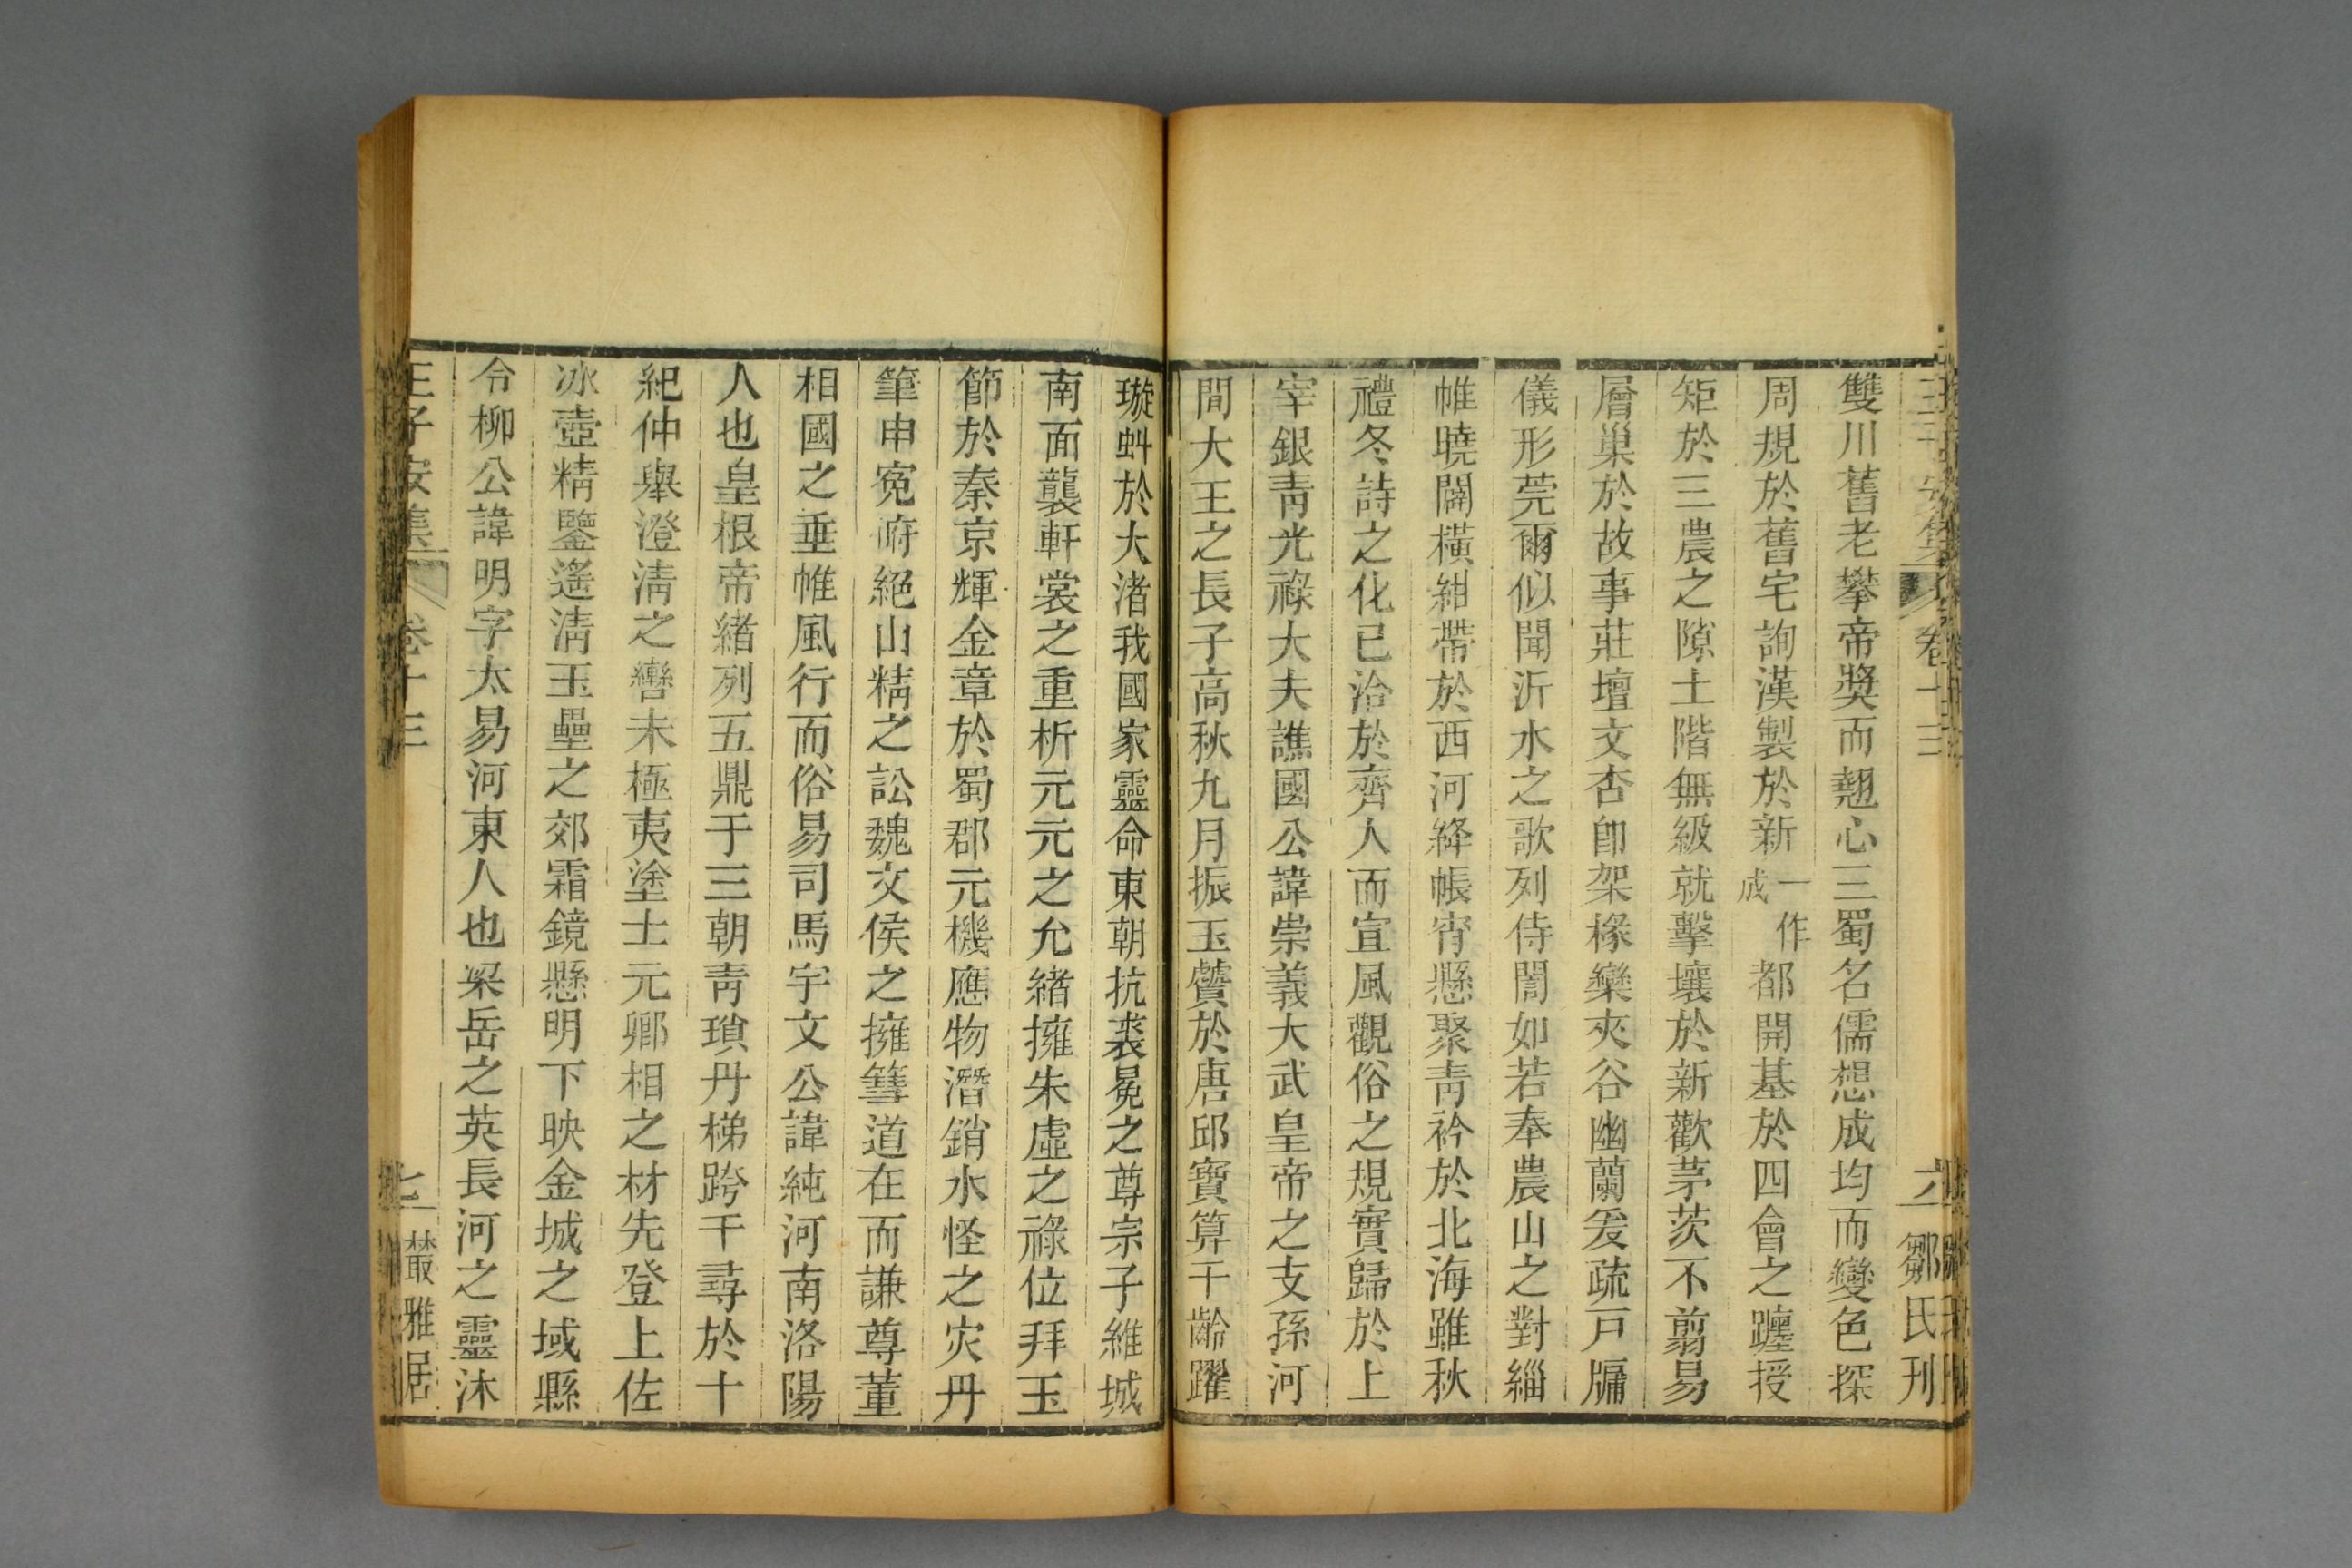 王子安集 卷十三 六 鄒氏刊
雙川舊老攀帝獎而翹心三蜀名儒想成均而變色探
周規於舊宅詢漢製於新一作成都開基於四會之躔授
矩於三農之隙土階無級就擊壤於新歡茅茨不翦易
層巢於故事莊壇文杏卽架椽欒夾谷幽蘭爰疏戸牖
儀形莞爾似聞沂水之歌列侍誾如若奉農山之對緇
帷曉闢橫紺帶於西河絳帳宵懸聚靑衿於北海雖秋
禮冬詩之化已洽於齊人而宣風觀俗之規實歸於上
宰銀靑光祿大夫譙國公諱崇義大武皇帝之支孫河
間大王之長子高秋九月振玉贊於唐邱寶算千齡躍
璇蚪於大渚我國家靈命東朝抗裘冕之尊宗子維城
南面襲軒裳之重析元元之允緒擁朱虛之祿位拜玉
節於秦京輝金章於蜀郡元機應物潛銷水怪之灾丹
筆申寃府絕山精之訟魏文侯之擁篲道在而謙尊董
相國之垂帷風行而俗易司馬宇文公諱純河南洛陽
人也皇根帝緒列五鼎于三朝靑瑣丹梯跨千尋於十
紀仲舉澄淸之轡未極夷塗士元卿相之材先登上佐
冰壺精鑒遙淸玉壘之郊霜鏡懸明下映金城之域縣
令柳公諱明字太易河東人也梁岳之英長河之靈沐
王子安集 卷十三 七 叢雅居